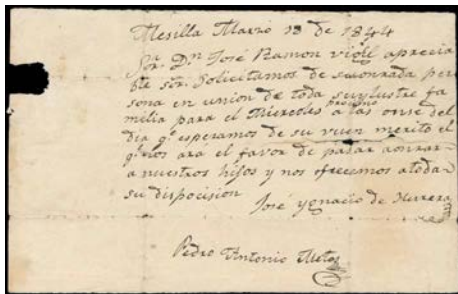 Mesilla Marzo 18 de 1844
Sor. Dn José Ramon vigil aprecia
ble sór. Solicitamos de suonrada per
sona en union de toda suylustre fa
milia para el Miercoles procsimo a las onse del
dia qe esperamos de su vuen merito el
qe nos ará el favor de pasar aonrar
a nuestros hijos y nos ofrecemos atoda
su dispocision
José ygnacio de Herrera
Pedro Antonio